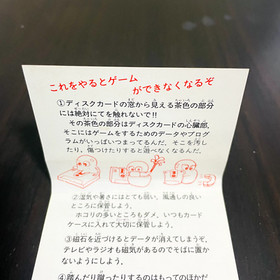 これをやるとゲームができなくなるぞ
①ディスクカードの窓から見える茶色の部分
には絶対にてを触れないで!!
その茶色の部分はディスクカードの心臓部。
そこにはゲームをするためのデータやプログ
ラムがいっぱいつまってるんだ。そこを汚し
たり、傷つけたりすると遊べなくなるんだ。
②湿気や暑さにはとても弱い。風通しの良い
ところに保管しよう。
ホコリの多いところもダメ。いつもカード
ケースに入れて大切に保管しよう。
③磁石を近づけるとデータが消えてしまうぞ。
テレビやラジオも磁気があるのでそばに置か
ないようにしよう。
④踏んだり蹴ったりするのはもってのほかだ